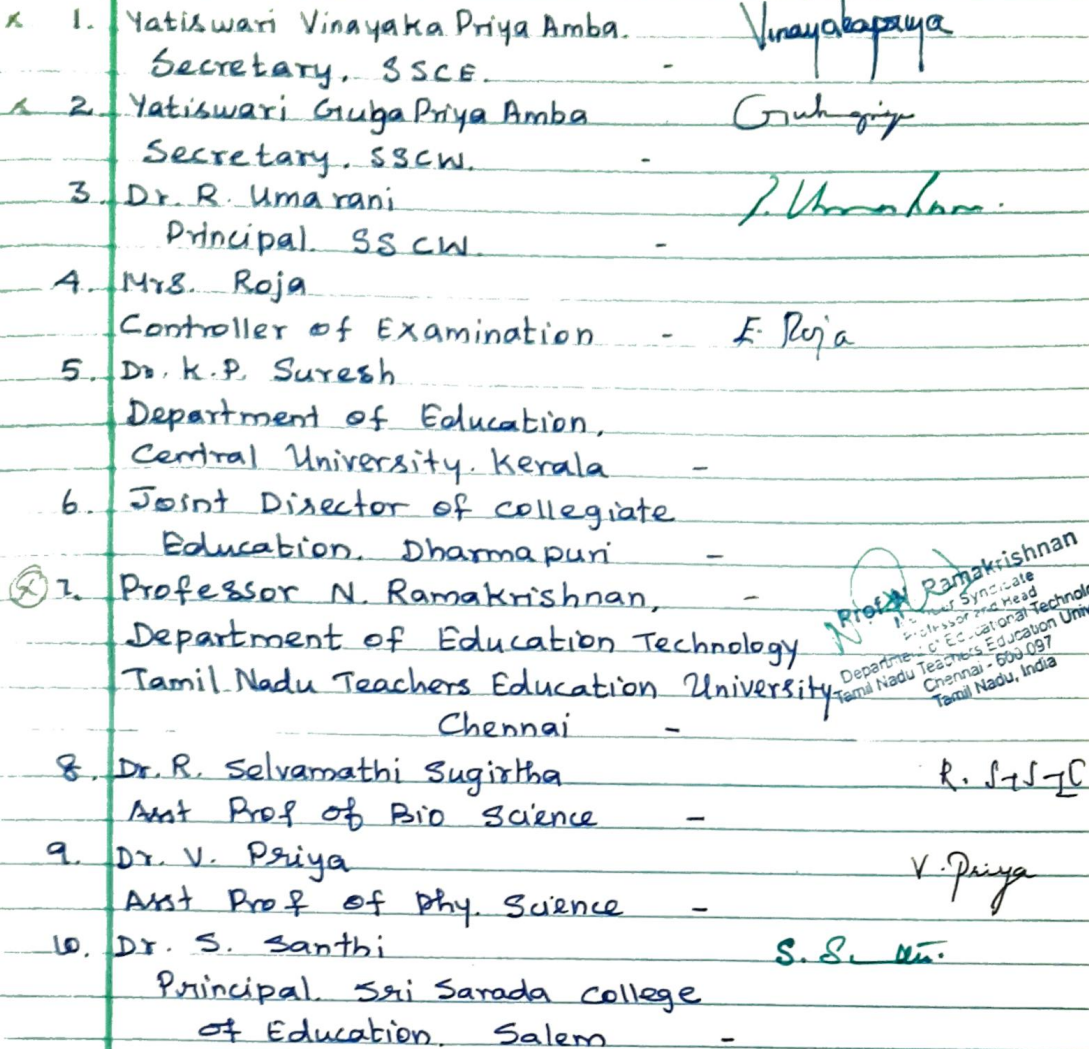 x 1. Yatiswari Vinayaka Priya Amba. Vinayakapriya
Secretary, SSCE. -
x 2. Yatiswari Guha Priya Amba Guhapriya
Secretary. SSCW. -
3. Dr. R. Uma rani
Principal. SSCW. -
4. Mrs. Roja
Controller of Examination - E. Roja
5. Dr. K.P. Suresh
Department of Education,
Central University. Kerala -
6. Joint Director of collegiate
Education. Dharmapuri -
x 7. Professor N. Ramakrishnan, -
Department of Education Technology
Tamil Nadu Teachers Education University
Chennai -
Prof. N Ramakrishnan
Member Syndicate
Professor and Head
Department of Educational Technolo
Tamil Nadu Teachers Education Univ
Chennai - 600 097
Tamil Nadu, India
8. Dr. R. Selvamathi Sugirtha R.
Asst Prof of Bio Science -
9. Dr. V. Priya V. Priya
Asst Prof of Phy. Science -
10. Dr. S. Santhi S. S.
Principal. Sri Sarada college
of Education. Salem -